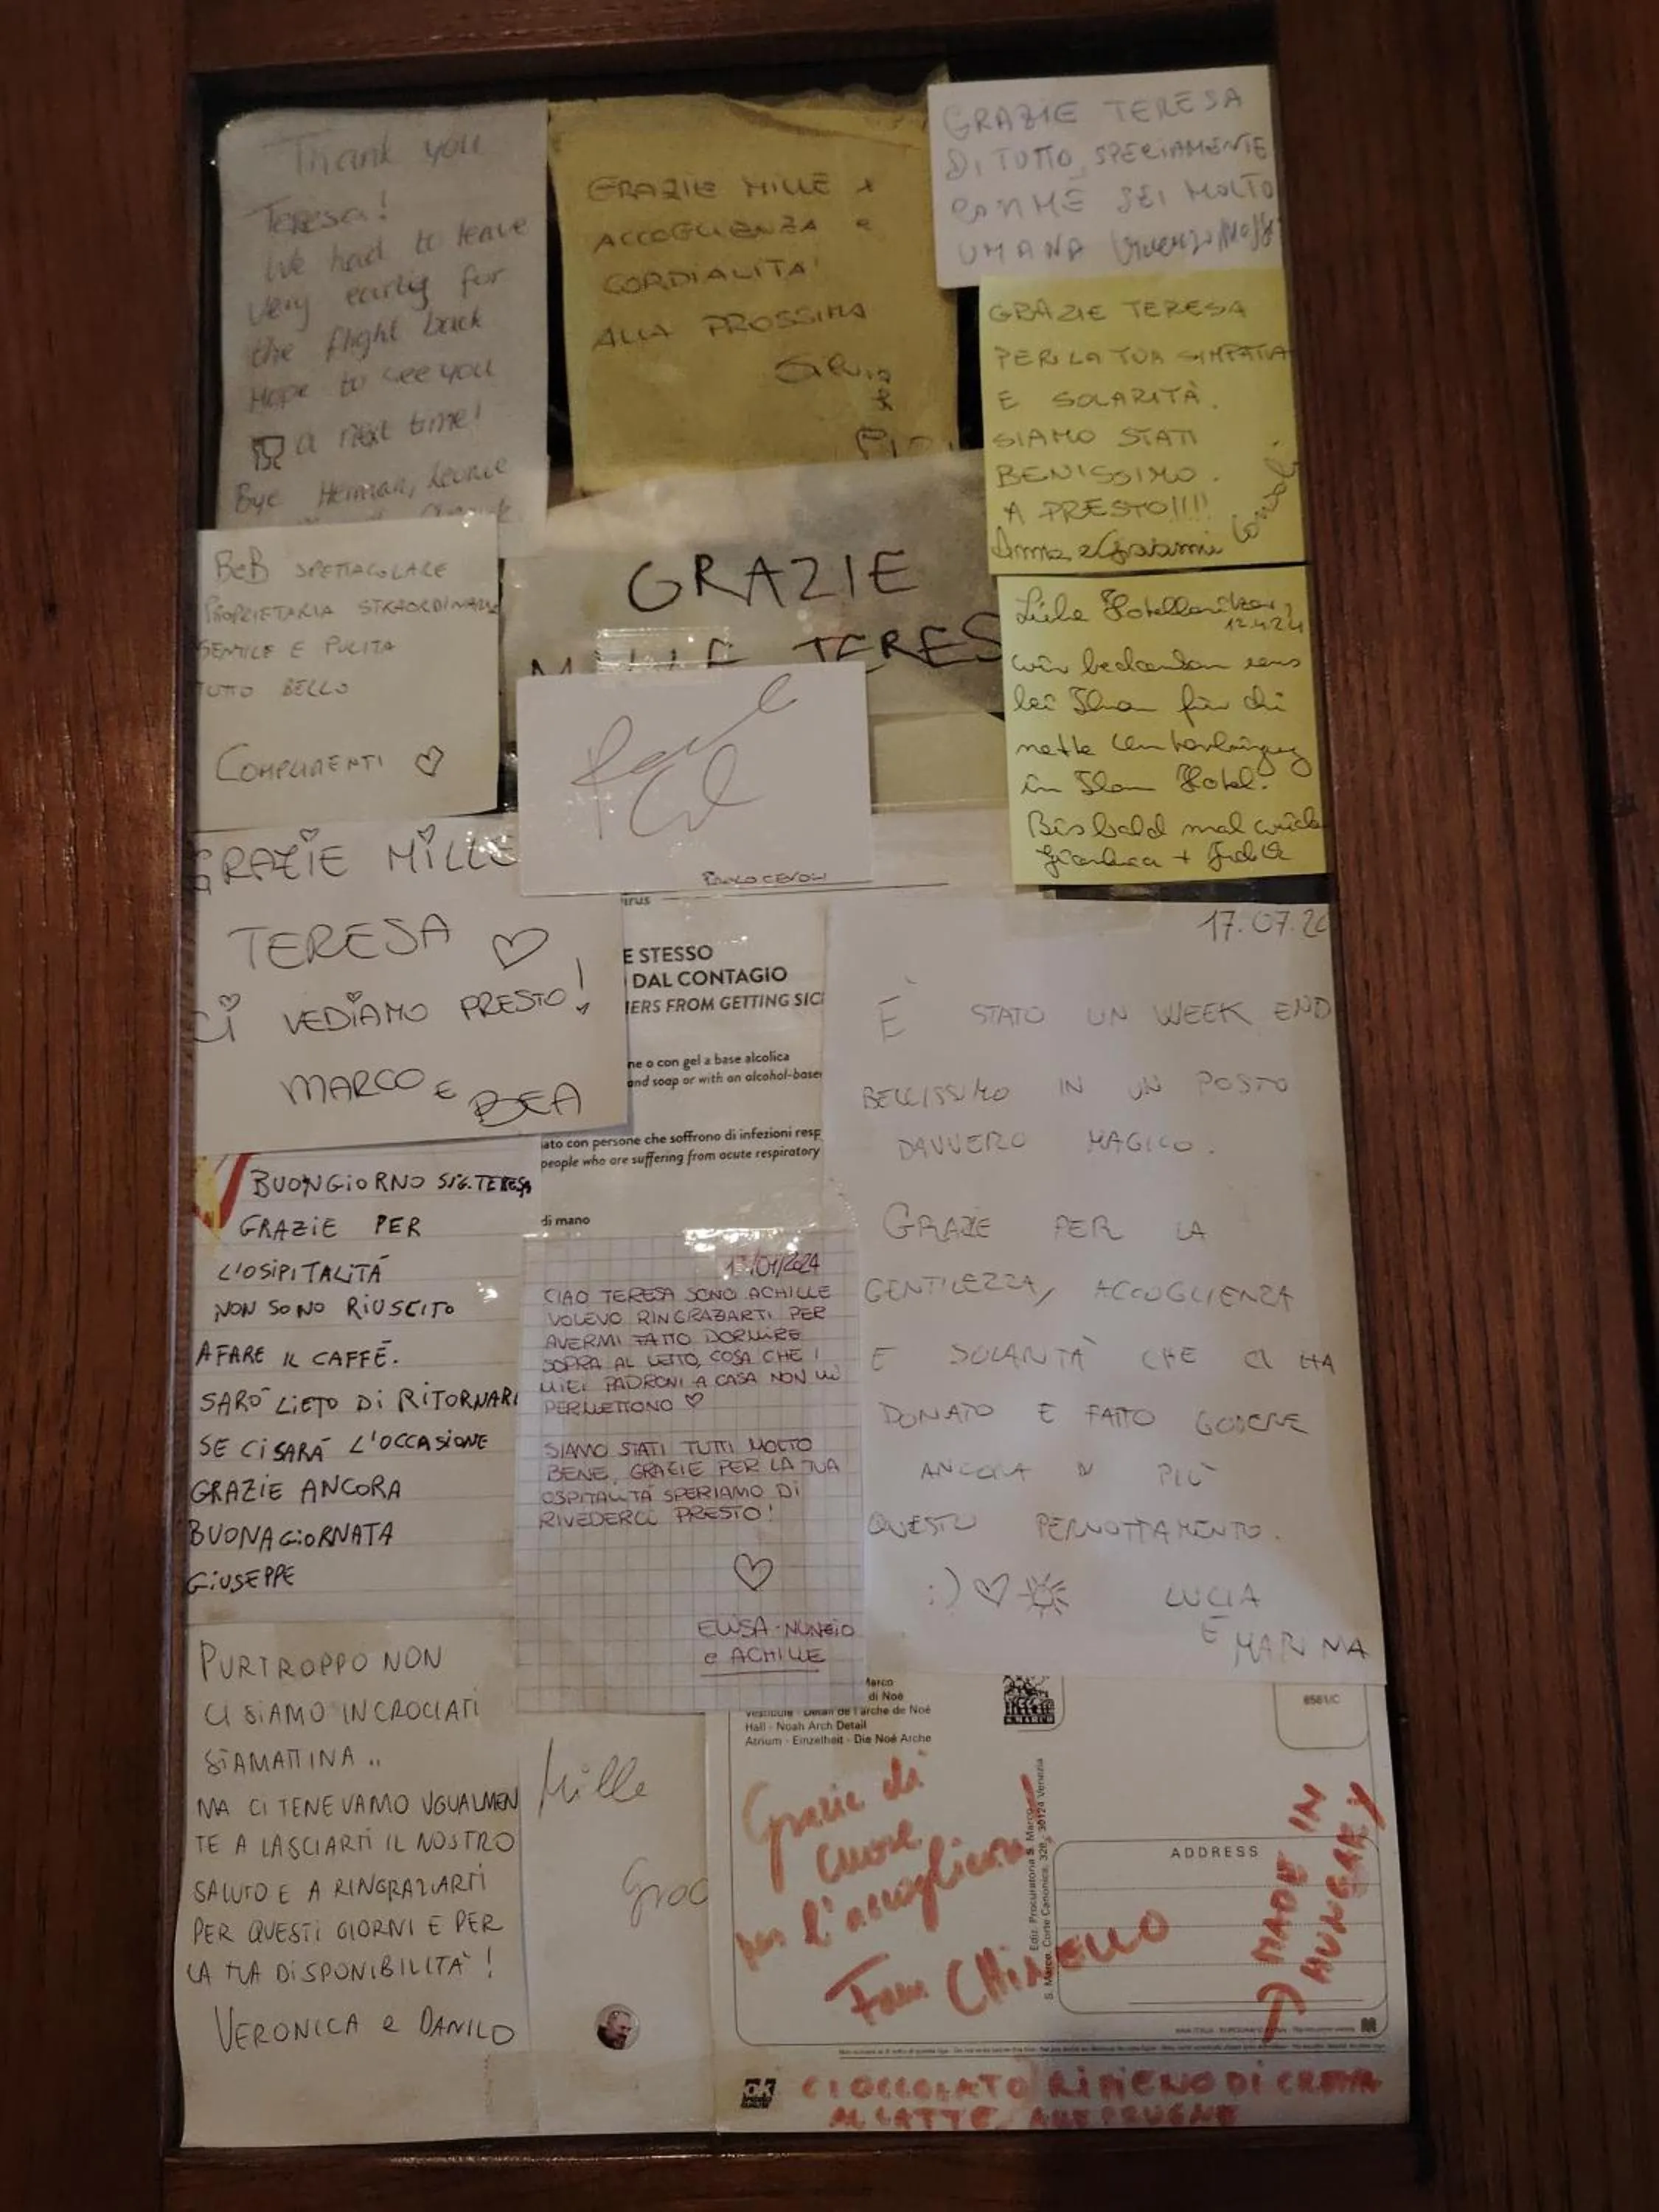 Thank you
Teresa!
We had to leave
very early for
the flight back
Hope to see you
a next time!
Bye Herman, Leonie
GRAZIE MILLE x
ACCOGLIENZA e
CORDIALITA'
ALLA PROSSIMA
Silvia
&
GRAZIE TERESA
DI TUTTO, SPECIAMENTE
SEI MOLTO
UMANA
GRAZIE TERESA
PER LA TUA SIMPATIA
E SOLARITÀ.
SIAMO STATI
BENISSIMO.
A PRESTO!!!!
Anna e Gianni
BeB SPETTACOLARE
PROPRIETARIA STRAORDINARIA
GENTILE E PULITA
TUTTO BELLO
COMPLIMENTI ♡
GRAZIE
MILLE TERES
PAOLO CEVOLI
Liebe
12.4.24
wir bedanken uns
bei Ihnen für die
nette
in Hotel.
Bis bald mal wieder
Gianluca +
GRAZIE MILLE
TERESA ♡
CI VEDIAMO PRESTO!
MARCO E BEA
irus
E STESSO
DAL CONTAGIO
IERS FROM GETTING SIC
ne o con gel a base alcolica
and soap or with an alcohol-base
iato con persone che soffrono di infezioni resp
people who are suffering from acute respiratory
di mano
17.07.20
È STATO UN WEEK END
BELLISSIMO IN UN POSTO
DAVVERO MAGICO.
GRAZIE PER LA
GENTILEZZA, ACCOGLIENZA
E SOLARITÀ CHE CI HA
DONATO E FATTO GODERE
ANCORA DI PIÙ
QUESTO PERNOTTAMENTO.
:) ♡ LUCIA
E MARINA
BUONGIORNO SIG. TERESA
GRAZIE PER
L'OSIPITALITÁ
NON SONO RIUSCITO
A FARE IL CAFFÈ.
SARÒ LIETO DI RITORNARE
SE CI SARÁ L'OCCASIONE
GRAZIE ANCORA
BUONA GIORNATA
GIUSEPPE
/01/2024
CIAO TERESA SONO ACHILLE
VOLEVO RINGRAZIARTI PER
AVERMI FATTO DORMIRE
SOPRA AL LETTO, COSA CHE I
MIEI PADRONI A CASA NON MI
PERMETTONO ♡
SIAMO STATI TUTTI MOLTO
BENE, GRAZIE PER LA TUA
OSPITALITÀ SPERIAMO DI
RIVEDERCI PRESTO!
♡
ELISA - NUNZIO
e ACHILLE
PURTROPPO NON
CI SIAMO INCROCIATI
STAMATTINA..
MA CI TENEVAMO UGUALMEN
TE A LASCIARTI IL NOSTRO
SALUTO E A RINGRAZIARTI
PER QUESTI GIORNI E PER
LA TUA DISPONIBILITÀ!
VERONICA e DANILO
Mille
Graz
Marco
di Noé
Vestibule - Détail de l'arche de Noé
Hall - Noah Arch Detail
Atrium - Einzelheit - Die Noé Arche
S. MARCO
Grazie di
cuore
per l'accoglienza
Fam CHINELLO
Ediz. Procuratoria S. Marco
S. Marco, Corte Canonica, 328, 30124 Venezia
ADDRESS
→ MADE IN
HUNGARY
ok
CIOCCOLATO RIPIENO DI CREMA
AL LATTE PRUGNE